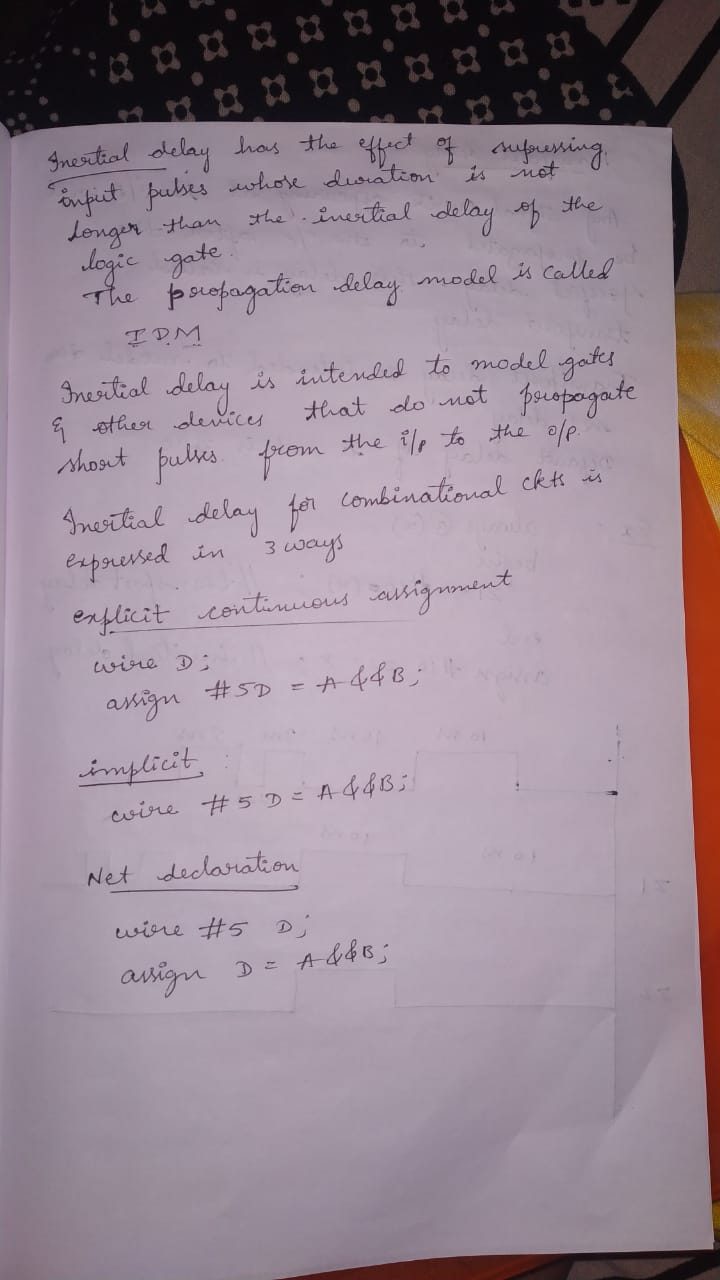 Inertial delay has the effect of supressing
input pulses whose duration is not
longer than the inertial delay of the
logic gate.
The propagation delay model is called
IDM
Inertial delay is intended to model gates
& other devices that do not propagate
short pulses from the i/p to the o/p.
Inertial delay for combinational ckts is
expressed in 3 ways
explicit continuous assignment
wire D;
assign #5D = A&&B;
implicit
wire #5 D = A&&B;
Net declaration
wire #5 D;
assign D = A&&B;